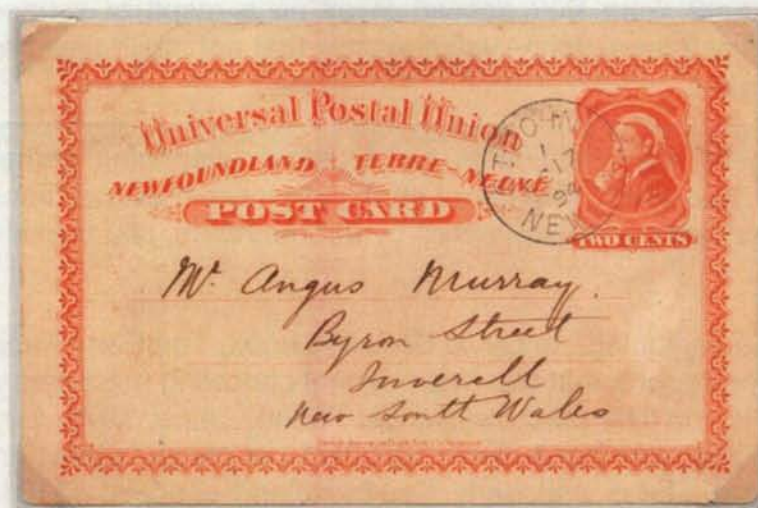 Universal Postal Union
NEWFOUNDLAND TERRE-NEUVE
POST CARD
TWO CENTS
17
94
NEW
Mr. Angus Murray.
Byron Street
Inverell
New South Wales